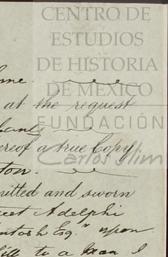 CENTRO DE
ESTUDIOS
DE HISTORIA
DE MEXICO
FUNDACIÓN
Carlos Slim
at the request
ereof a true Copy
ton.
mitted and sworn
eet Adelphi
ntosh Esq." upon
to a man I